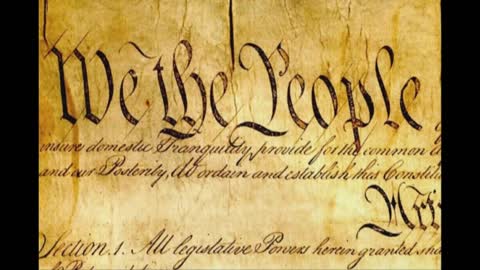 We the People
insure domestic Tranquility, provide for the common
and our Posterity, do ordain and establish this Constitu
Section. 1. All legislative Powers herein granted sha